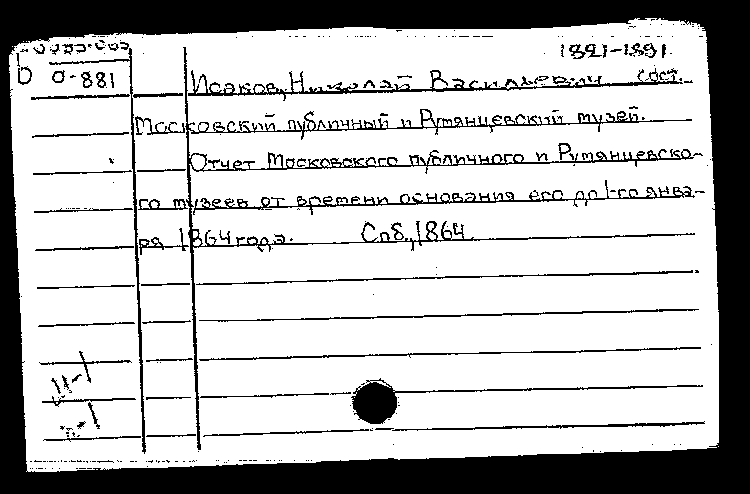 1821-1891
b O-881 Исаков, Николай Васильевич сост.
Московский публичный и Румянцевский музей.
Отчет Московского публичного и Румянцевско-
го музеев от времени основания его до 1-го янва-
ря 1864 года. Спб., 1864